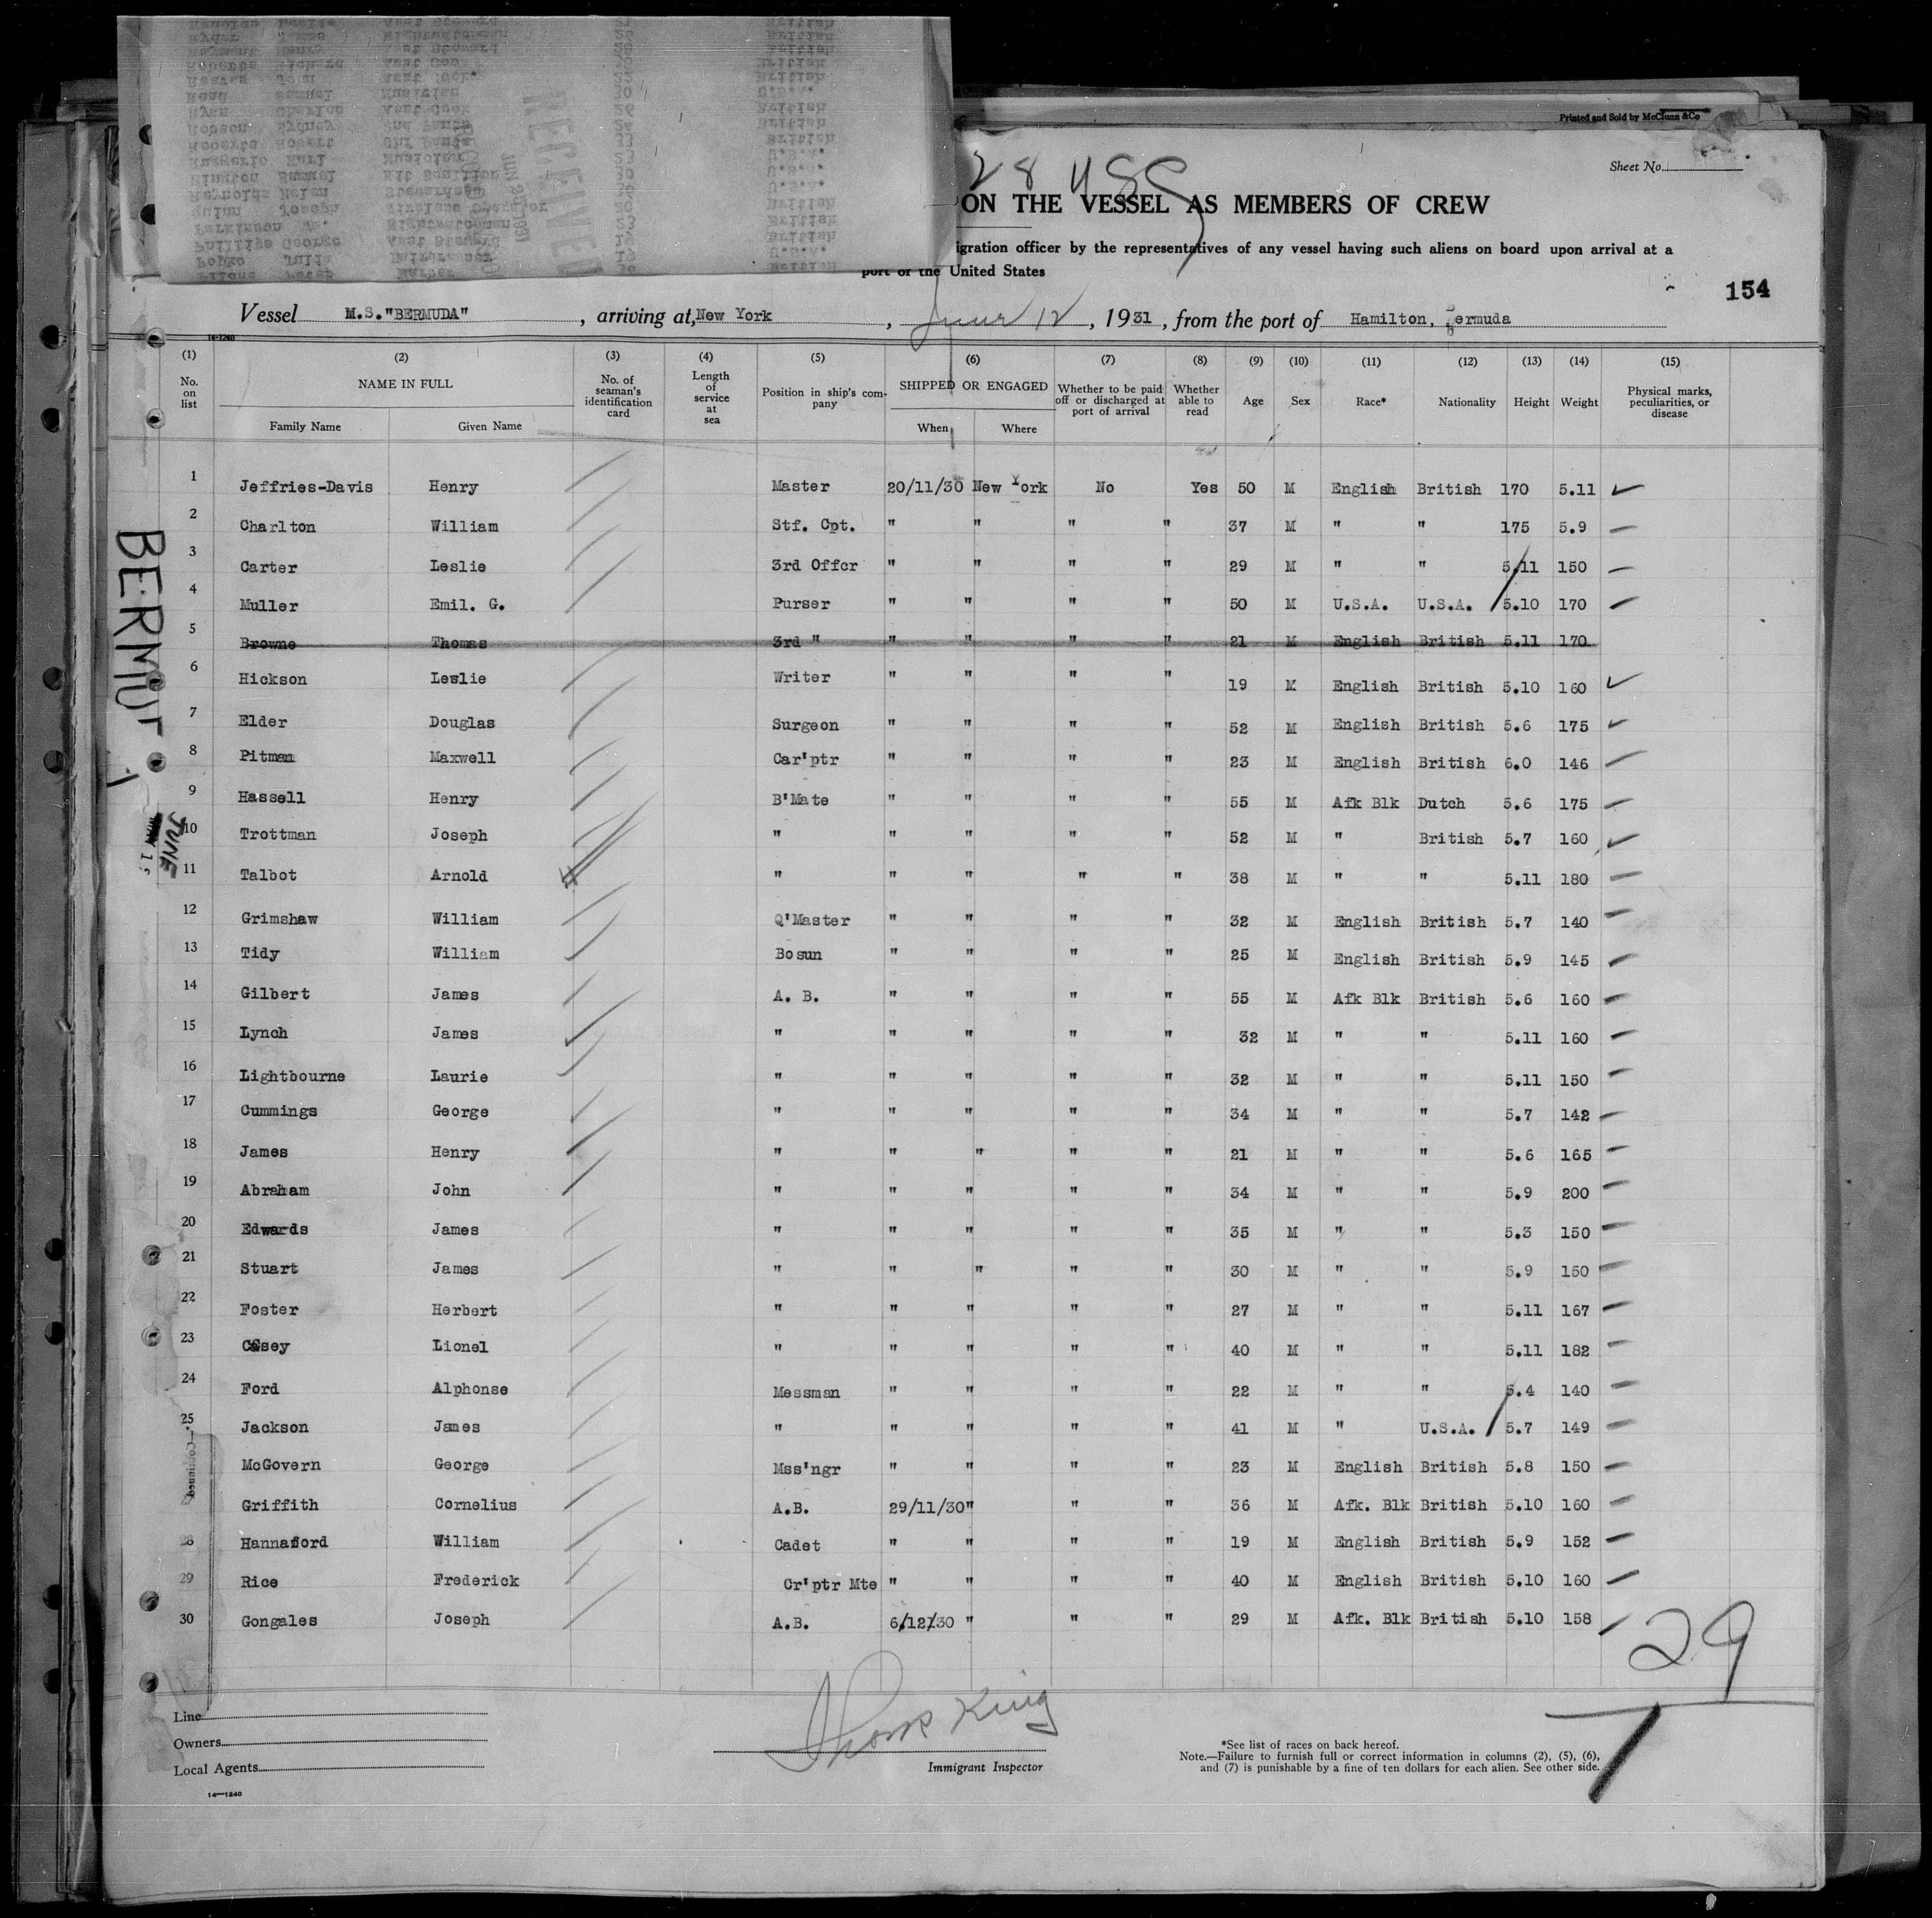 Printed and Sold by McClunn &Co
Sheet No.
28 USS
ON THE VESSEL AS MEMBERS OF CREW
igration officer by the representatives of any vessel having such aliens on board upon arrival at a
port of the United States
154
Vessel M.S."BERMUDA", arriving at, New York, June 12, 1931, from the port of Hamilton, Bermuda
14-1240
(1) (2) (3) (4) (5) (6) (7) (8) (9) (10) (11) (12) (13) (14) (15)
No. on list NAME IN FULL No. of seaman's identification card Length of service at sea Position in ship's company SHIPPED OR ENGAGED Whether to be paid off or discharged at port of arrival Whether able to read Age Sex Race* Nationality Height Weight Physical marks, peculiarities, or disease
Family Name Given Name When Where
1 Jeffries-Davis Henry Master 20/11/30 New York No Yes 50 M English British 170 5.11
2 Charlton William Stf. Cpt. " " " " 37 M " " 175 5.9
3 Carter Leslie 3rd Offcr " " " " 29 M " " 5.11 150
4 Muller Emil. G. Purser " " " " 50 M U.S.A. U.S.A. 5.10 170
5 Browne Thomas 3rd " " " " " 21 M English British 5.11 170
6 Hickson Leslie Writer " " " " 19 M English British 5.10 160
7 Elder Douglas Surgeon " " " " 52 M English British 5.6 175
8 Pitman Maxwell Car'ptr " " " " 23 M English British 6.0 146
9 Hassell Henry B'Mate " " " " 55 M Afk Blk Dutch 5.6 175
10 Trottman Joseph " " " " " 52 M " British 5.7 160
11 Talbot Arnold " " " " " 38 M " " 5.11 180
12 Grimshaw William Q'Master " " " " 32 M English British 5.7 140
13 Tidy William Bosun " " " " 25 M English British 5.9 145
14 Gilbert James A. B. " " " " 55 M Afk Blk British 5.6 160
15 Lynch James " " " " " 32 M " " 5.11 160
16 Lightbourne Laurie " " " " " 32 M " " 5.11 150
17 Cummings George " " " " " 34 M " " 5.7 142
18 James Henry " " " " " 21 M " " 5.6 165
19 Abraham John " " " " " 34 M " " 5.9 200
20 Edwards James " " " " " 35 M " " 5.3 150
21 Stuart James " " " " " 30 M " " 5.9 150
22 Foster Herbert " " " " " 27 M " " 5.11 167
23 Casey Lionel " " " " " 40 M " " 5.11 182
24 Ford Alphonse Messman " " " " 22 M " " 5.4 140
25 Jackson James " " " " " 41 M " U.S.A. 5.7 149
McGovern George Mss'ngr " " " " 23 M English British 5.8 150
27 Griffith Cornelius A.B. 29/11/30 " " " 36 M Afk. Blk British 5.10 160
28 Hannaford William Cadet " " " " 19 M English British 5.9 152
29 Rice Frederick Cr'ptr Mte " " " " 40 M English British 5.10 160
30 Gongales Joseph A.B. 6/12/30 " " " 29 M Afk. Blk British 5.10 158
29
BERMU
JUNE
Line
Owners
Local Agents
14—1240
Immigrant Inspector
*See list of races on back hereof.
Note.—Failure to furnish full or correct information in columns (2), (5), (6),
and (7) is punishable by a fine of ten dollars for each alien. See other side.